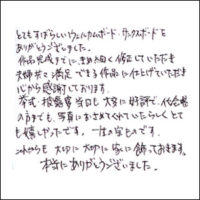 とてもすばらしいウェルカムボード・サンクスボードを
ありがとうございました。
作品完成までに、きめ細かく修正していただき
夫婦共々満足できる作品に仕上げていただき
心から感謝しております。
挙式・披露宴当日も大変に好評で、化粧室
の戸までも、写真におさめてくれていたらしく とて
も嬉しかったです。一生の宝ものです。
これからも 大切に 大切に 家に飾っておきます。
本当にありがとうございました。